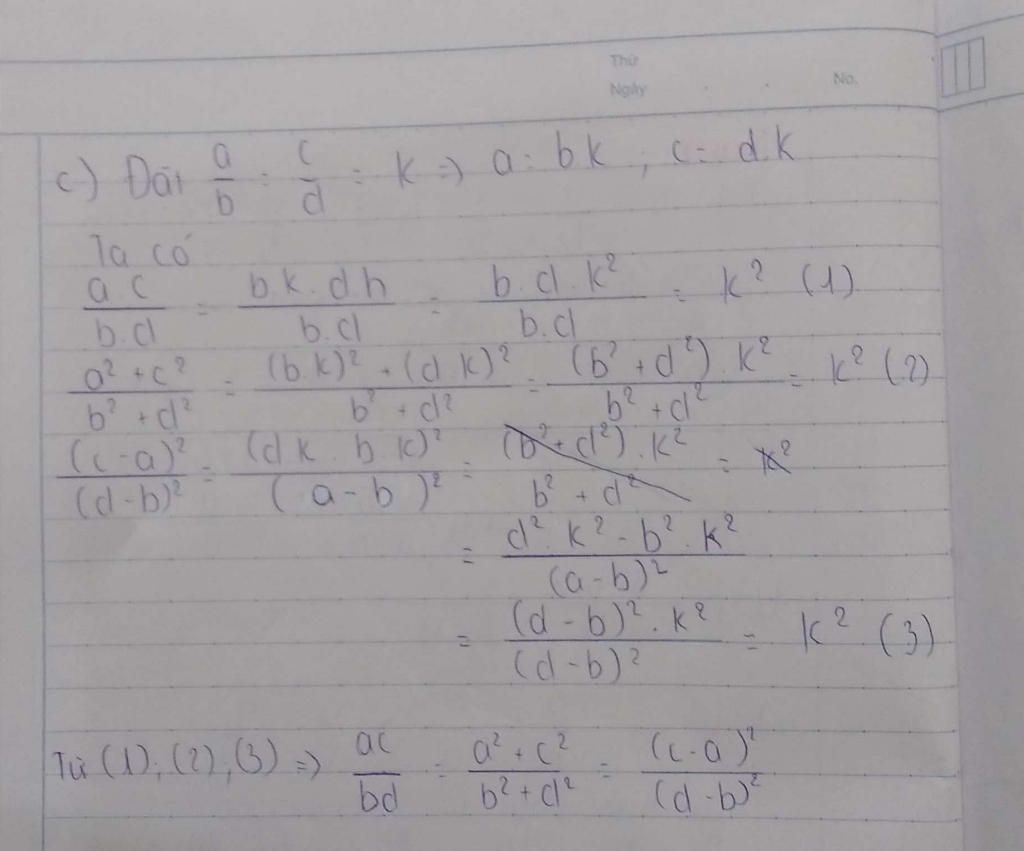 Thứ
Ngày . . No.
c) Đặt a/b = c/d = k => a = bk ; c = d.k
Ta có
a.c/b.d = bk.dk/b.d = b.d.k²/b.d = k² (1)
a²+c²/b²+d² = (b.k)²+(d.k)²/b²+d² = (b²+d²).k²/b²+d² = k² (2)
(c-a)²/(d-b)² = (dk - b.k)²/(a-b)² = (b²+d²).k²/b²+d² = k²
= d².k²-b².k²/(a-b)²
= (d-b)².k²/(d-b)² = k² (3)
Từ (1), (2), (3) => ac/bd = a²+c²/b²+d² = (c-a)²/(d-b)²